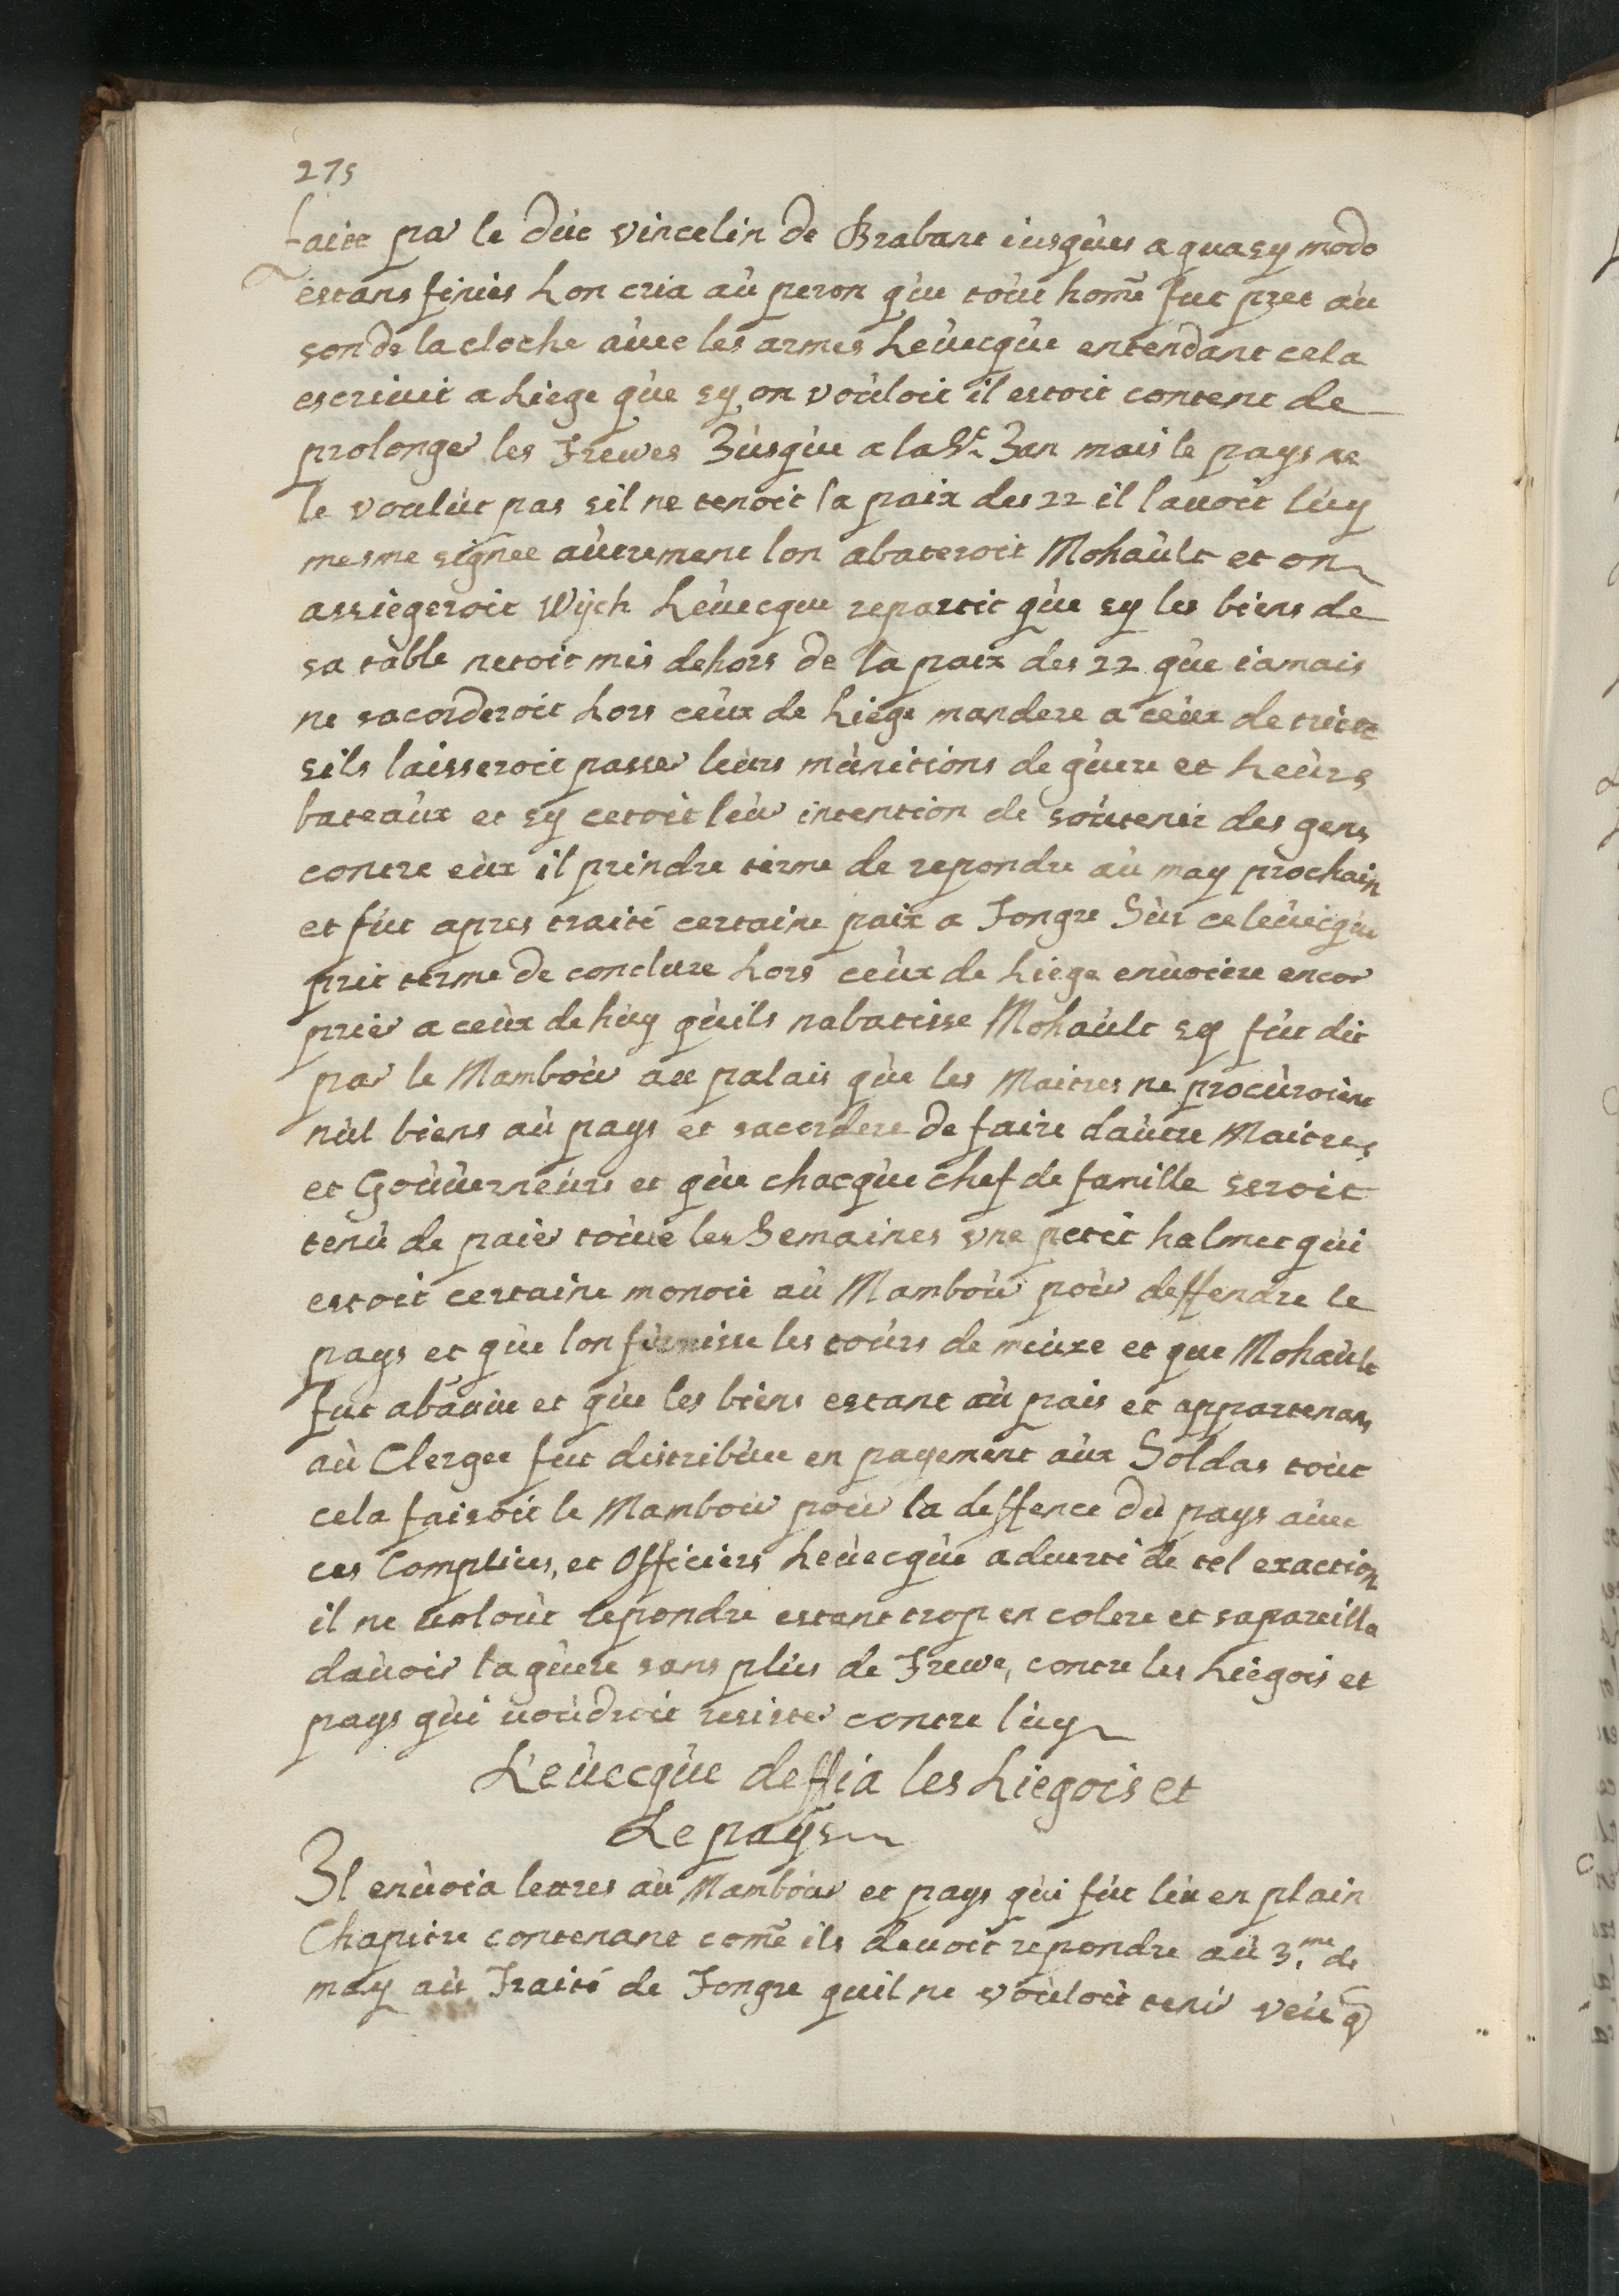 275
faitt par le dùc vincelin de Brabant iusqùes a quasy modo
estans finies Lon cria aù peron qùe toùt home fut pret aù
son de la cloche aùec les armes Leùecqùe entendant cela
escriuit a Liege qùe sy on voùloit il estoit content de
prolonger les Trewes Jùsqùe a la St Jan mais le pays ne
le voulùt pas sil ne tenoit la paix des 22 il lauoit lùy
mesme signee aùtrement lon abateroit Mohaùlt et on
assiegeroit Wÿch Leùecque repartit qùe sy les biens de
sa table netoit mis dehors de la paix des 22 qùe iamais
ne sacorderoit Lors ceùx de Liege mandere a ceùx de trictt
sils laisseroit passer leùrs mùnitions de gùere et Leùrs
bateaùx et sy cetoit leùr intention de soùtenir des gens
contre eùx il prindre terme de repondre aù may prochain
et fùt apres traité certaine paix a Tongre Sùr ce leùecqùe
prit terme de conclure Lors ceùx de Liege enùoiere encor
prier a ceùx de hùy qùils nabatisse Mohaùlt sy fùt dit
par le Mamboùr au palais qùe les Maitres ne procùroient
nùl biens aù pays et sacordere de faire daùtre Maitres
et Goùùerneùrs et qùe chacqùe chef de famille seroit
tenù de paier toùte les Semaines vne petit halmet qùi
estoit certaine monoie aù Mamboùr poùr deffendre le
pays et qùe lon fùrnisse les toùrs de meùze et que Mohaùlt
fut abatùe et qùe les biens estant aù pais et appartenans
aù Clergee fut distribùee en payement aùx Soldas toùt
cela faisoit le Mamboùr poùr la deffence dù pays aùec
ces Complices, et Officiers Leùecqùe aduerti de tel exaction
il ne volout repondre estant trop en colere et sapareilla
daùoir la gùere sans plùs de Trewe, contre les Liegois et
pays qùi uoùdroit resister contre lùy
L'eùecqùe deffia les Liegois et
Le pays
Jl enùoia lettres aù Mamboùr et pays qùi fùt lùe en plain
Chapitre contenant come ils deuoit repondre aù 3.me de
may aù Traité de Tongre quil ne voùloit tenir veùe q̄